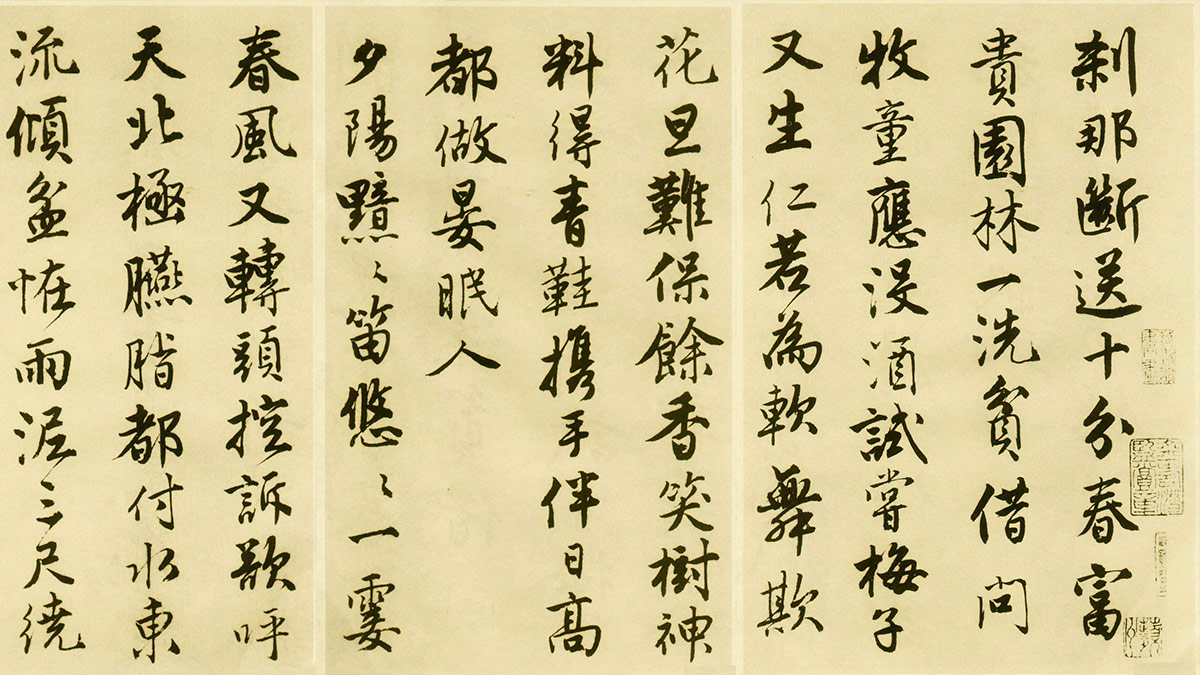 刹那斷送十分春富
貴園林一洗貧借問
牧童應沒酒試嘗梅子
又生仁若為軟舞欺
花旦難保餘香笑樹神
料得青鞋攜手伴日高
都做晏眠人
夕陽黯〻笛悠〻一霎
春風又轉頭控訴欲呼
天北極臙脂都付水東
流傾盆怪雨泥三尺繞